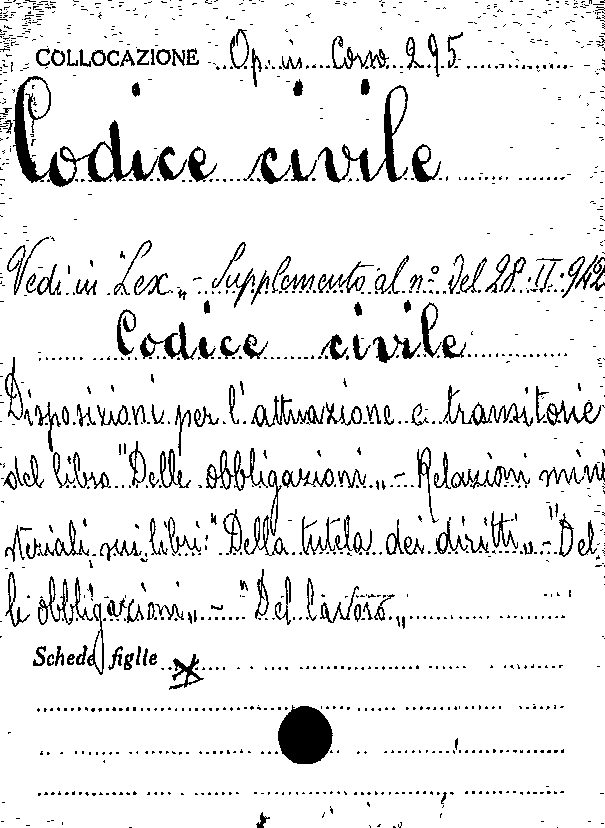 COLLOCAZIONE Op. in Corso 295
Codice civile
Vedi in "Lex„ - Supplemento al n° del 28·II·942
Codice civile
Disposizioni per l'attuazione e transitorie
del libro "Delle obbligazioni„ - Relazioni mini
steriali sui libri: "Della tutela dei diritti„ - "Del
le obbligazioni„ - "Del lavoro„
Schede figlie